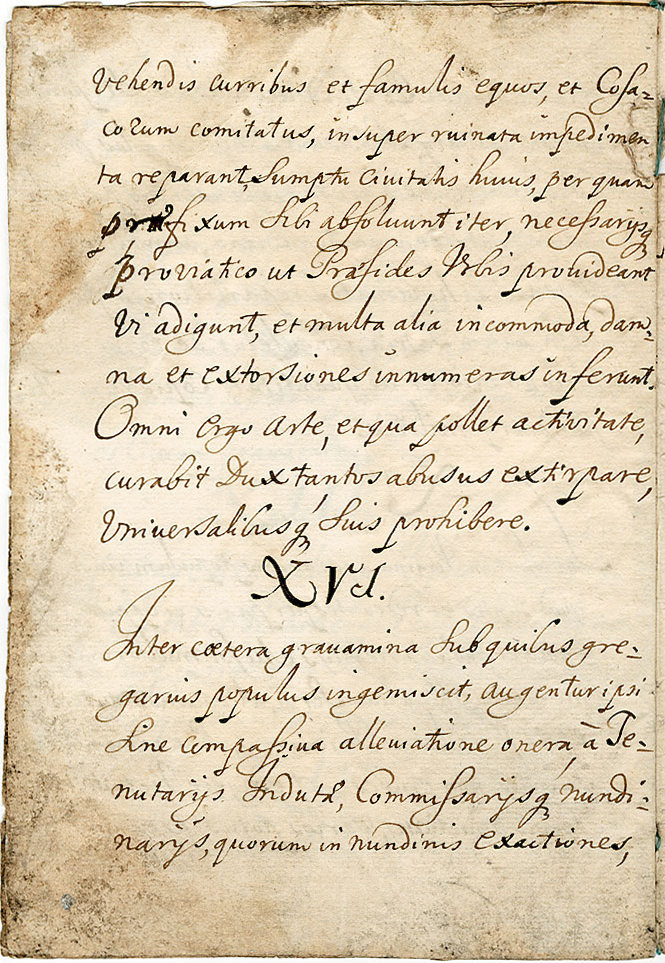 vehendis curribus et famulis equos, et Cosa-
corum comitatus, insuper ruinata impedimen
ta reparant, Sumptu Civitatis huius, per quam
præfixum Sibi absoluunt iter, necessarijsq
pro viatico ut Præsides Urbis provideant
vi adigunt, et multa alia incommoda, dam-
na et extorsiones innumeras inferunt.
Omni ergo Arte, et qua pollet activitate,
curabit Dux tantos abusus extirpare,
Universalibusq́ Suis prohibere.
XVI.
Inter cœtera gravamina Sub quibus gre-
garius populus ingemiscit, augentur ipsi
Sine compassiva alleviatione onera, à Te-
nutarijs Inductæ, Commissarijsq́ nundi-
narijs, quorum in nundinis exactiones,